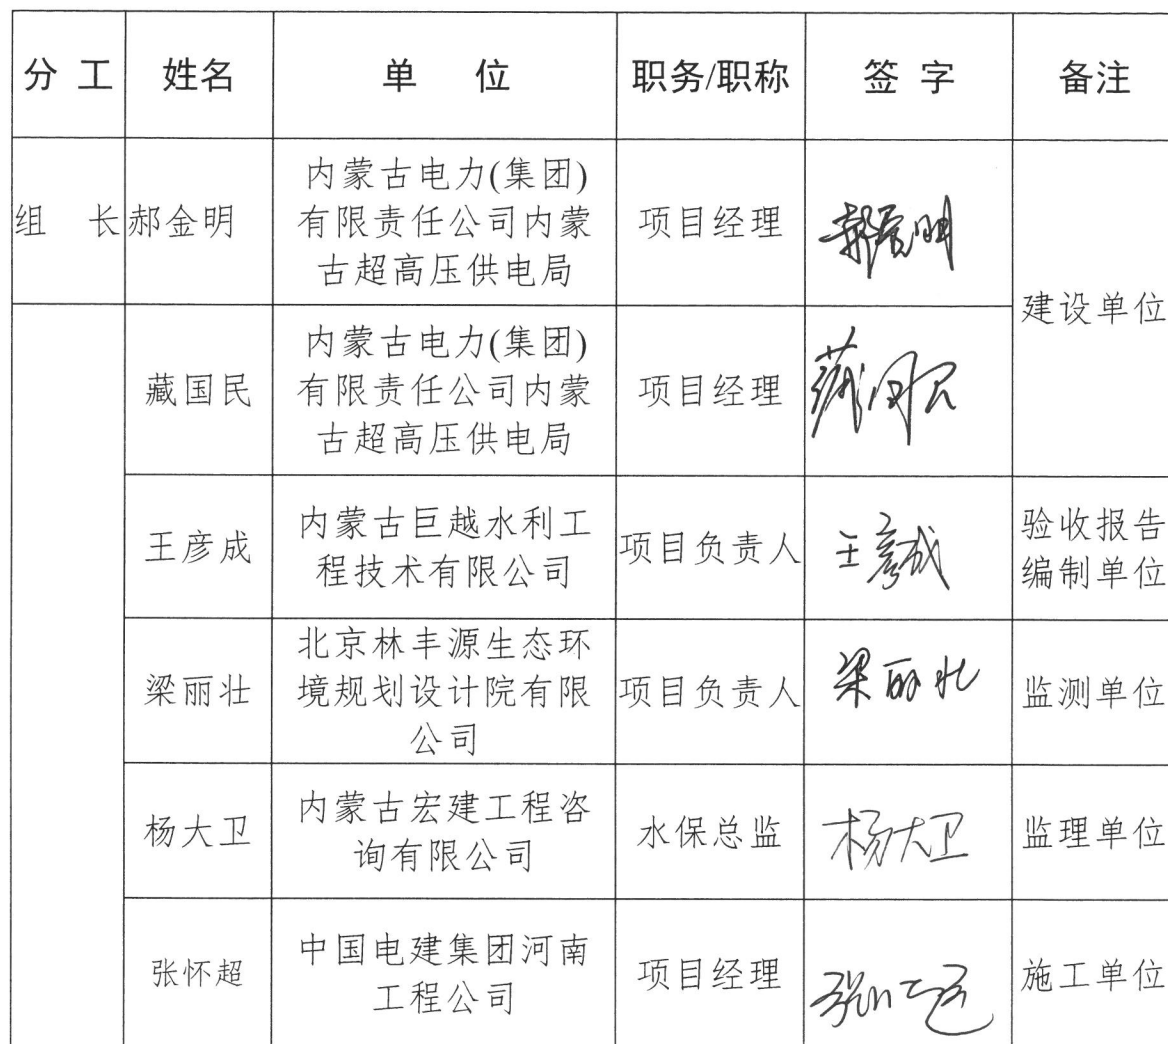 分 工 姓名 单 位 职务/职称 签 字 备注
组 长 郝金明 内蒙古电力(集团)
有限责任公司内蒙
古超高压供电局 项目经理 郝金明 建设单位
藏国民 内蒙古电力(集团)
有限责任公司内蒙
古超高压供电局 项目经理 藏国民
王彦成 内蒙古巨越水利工
程技术有限公司 项目负责人 王彦成 验收报告
编制单位
梁丽壮 北京林丰源生态环
境规划设计院有限
公司 项目负责人 梁丽壮 监测单位
杨大卫 内蒙古宏建工程咨
询有限公司 水保总监 杨大卫 监理单位
张怀超 中国电建集团河南
工程公司 项目经理 施工单位